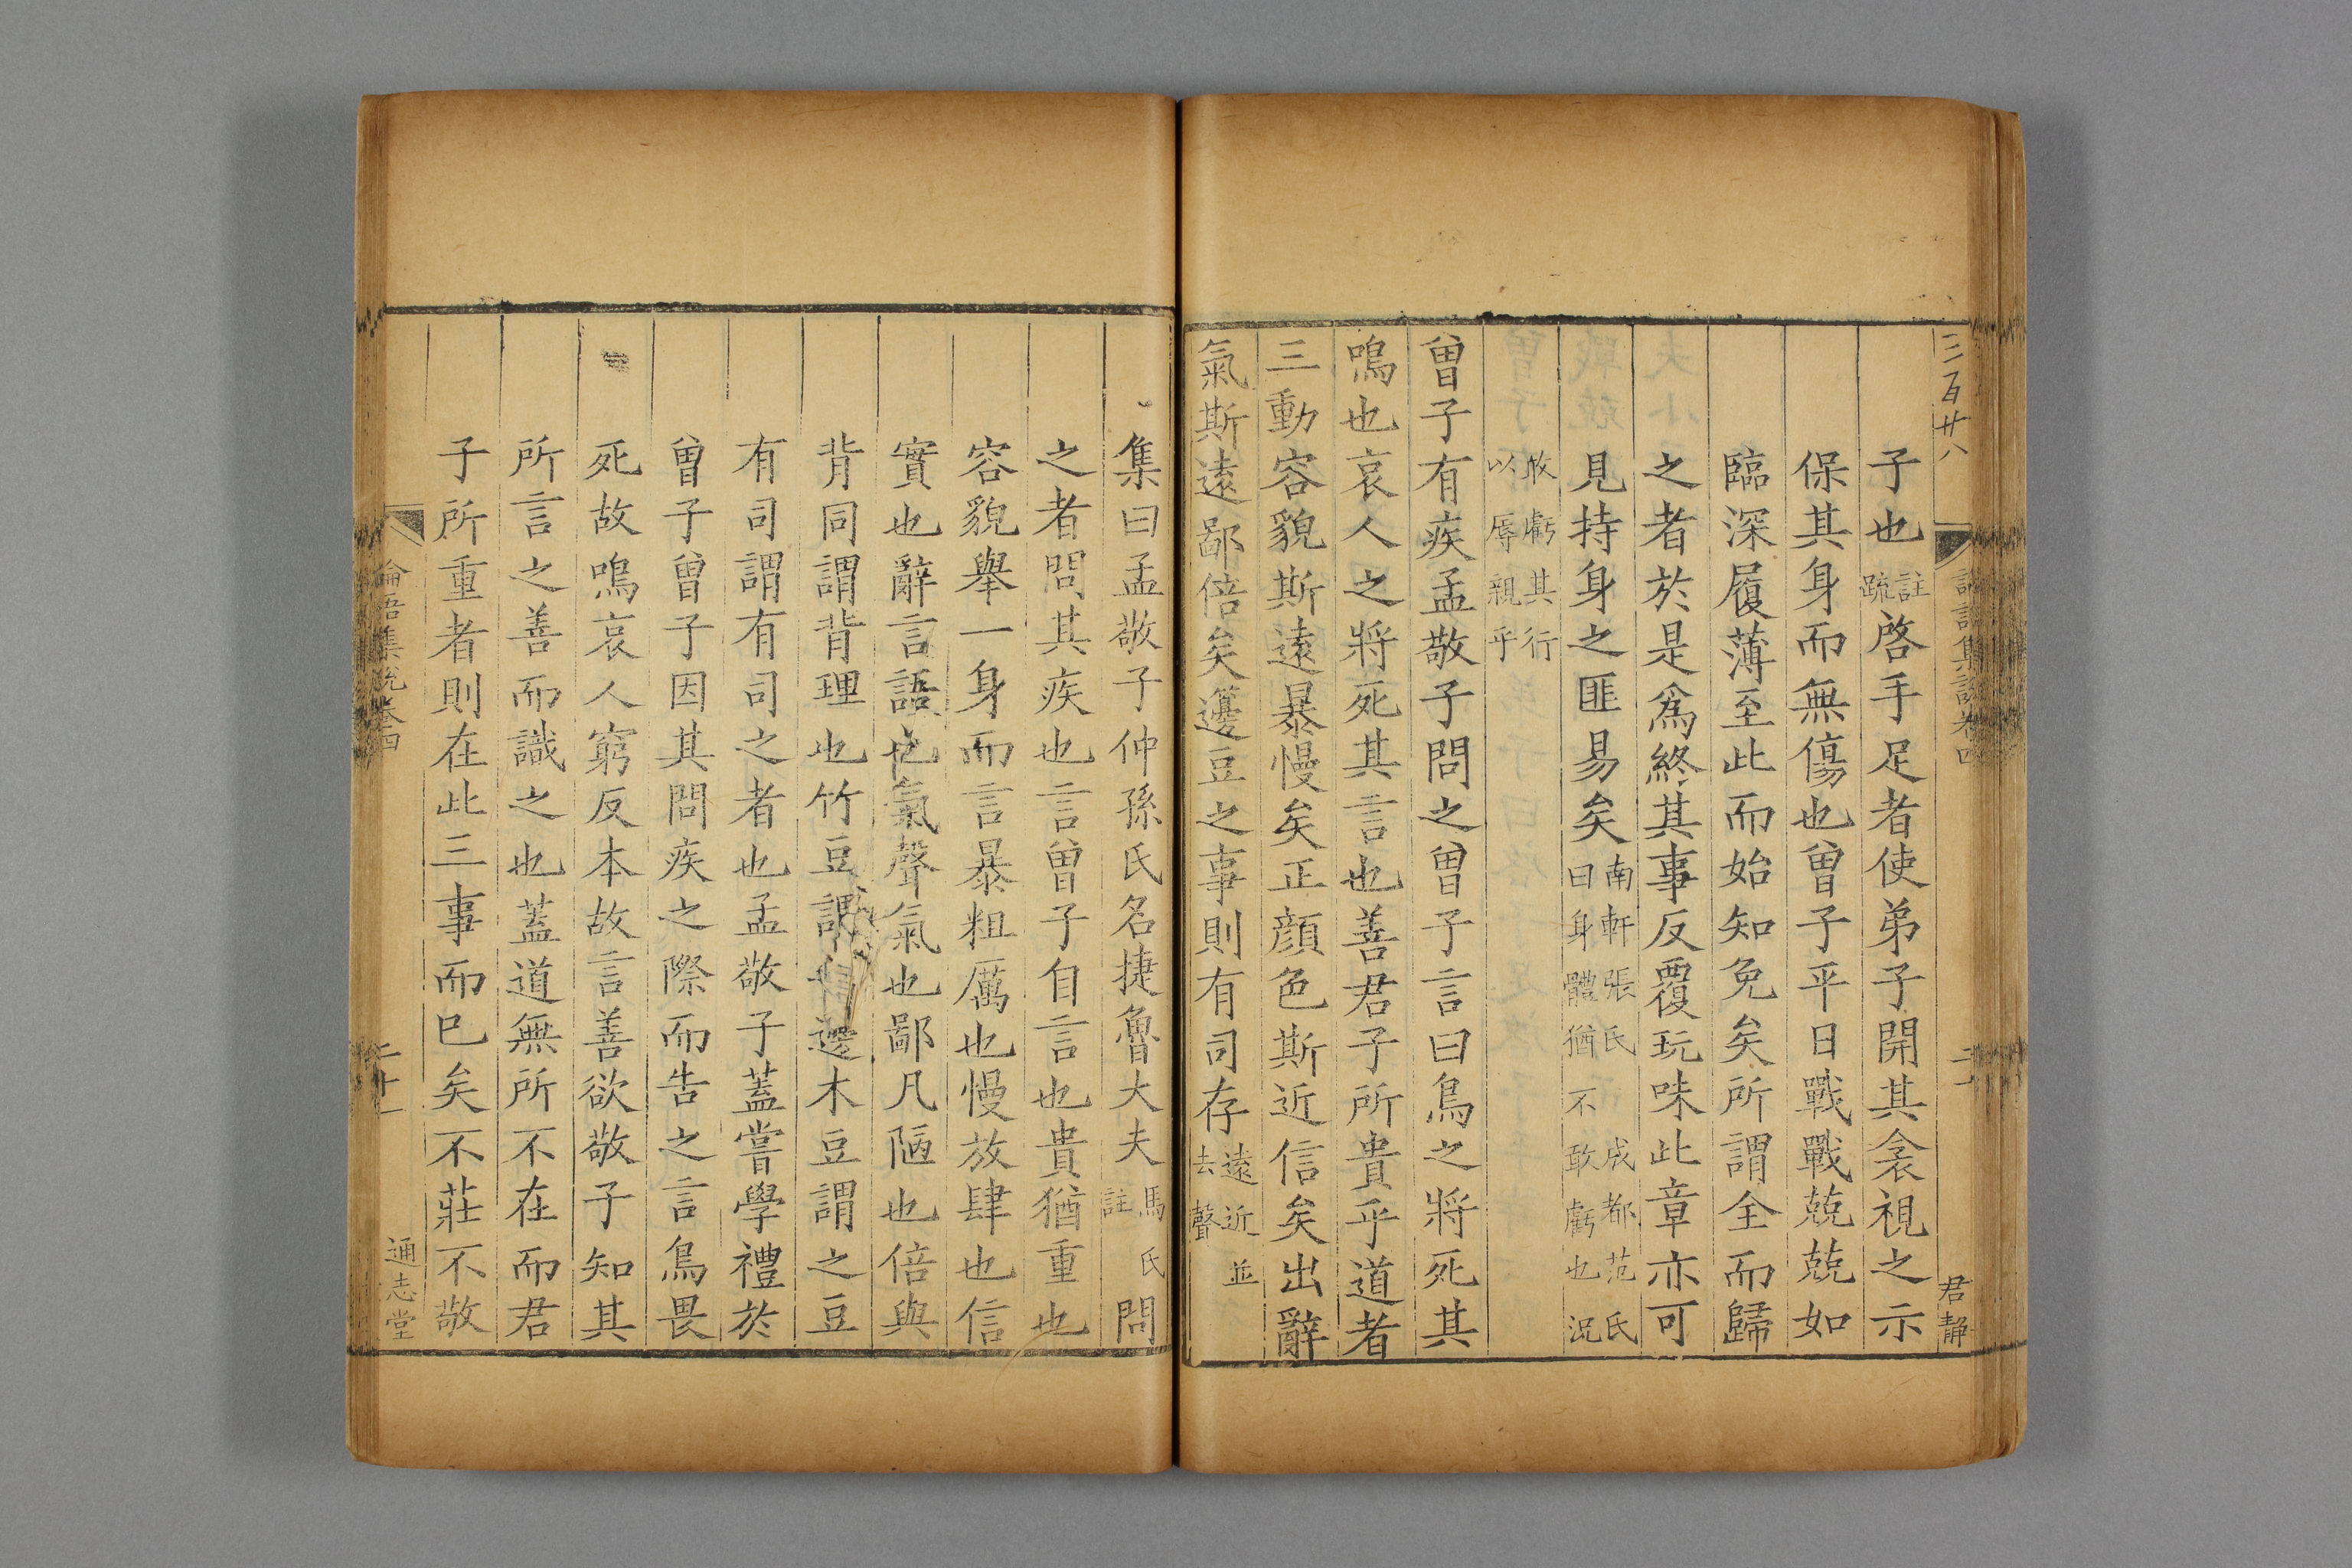 三百廿八
君靜
子也註疏啓手足者使弟子開其衾視之示
保其身而無傷也曾子平日戰戰兢兢如
臨深履薄至此而始知免矣所謂全而歸
之者於是爲終其事反覆玩味此章亦可
見持身之匪易矣南軒張氏曰身體猶不敢虧也況成都范氏
攸虧其行以辱親乎
曾子有疾孟敬子問之曾子言曰鳥之將死其
鳴也哀人之將死其言也善君子所貴乎道者
三動容貌斯遠暴慢矣正顔色斯近信矣出辭
氣斯遠鄙倍矣籩豆之事則有司存遠近並去聲
集曰孟敬子仲孫氏名捷魯大夫馬氏註問
之者問其疾也言曾子自言也貴猶重也
容貌舉一身而言暴粗厲也慢放肆也信
實也辭言語也氣聲氣也鄙凡陋也倍與
背同謂背理也竹豆謂籩木豆謂之豆
有司謂有司之者也孟敬子蓋嘗學禮於
曾子曾子因其問疾之際而告之言鳥畏
死故鳴哀人窮反本故言善欲敬子知其
所言之善而識之也蓋道無所不在而君
子所重者則在此三事而已矣不莊不敬
論語集說卷四
二十一
通志堂